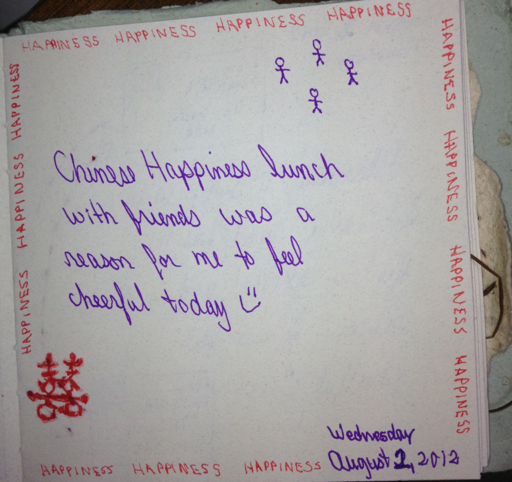 HAPPINESS HAPPINESS HAPPINESS HAPPINESS
HAPPINESS HAPPINESS HAPPINESS
Chinese Happiness lunch
with friends was a
reason for me to feel
cheerful today
HAPPINESS HAPPINESS HAPPINESS HAPPINESS
囍
HAPPINESS HAPPINESS HAPPINESS
Wednesday
August 1, 2012